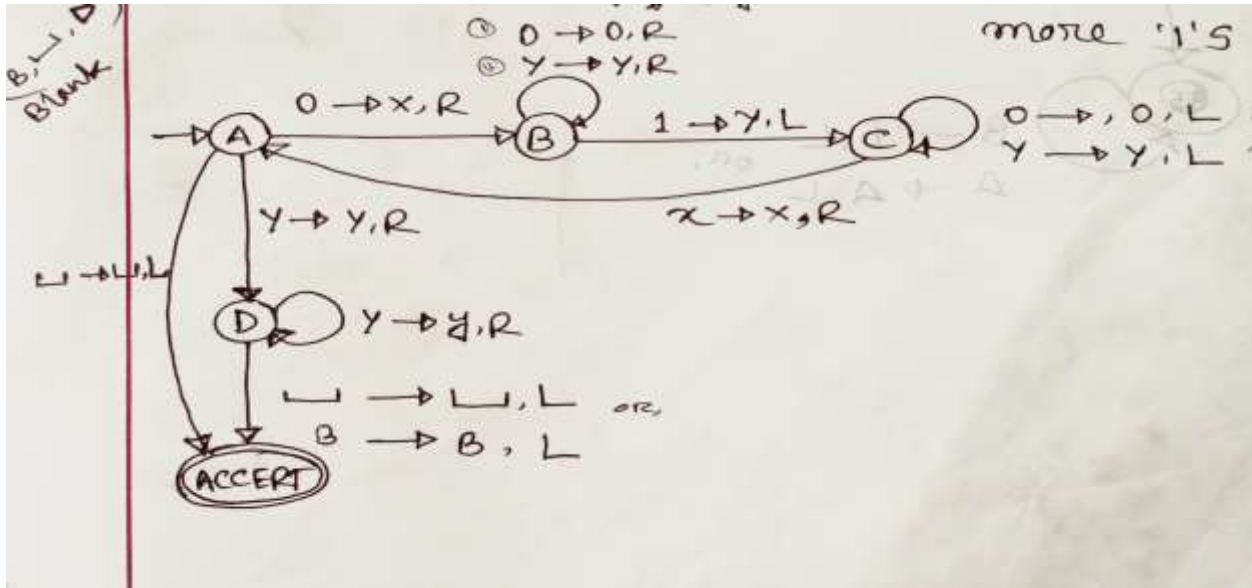 B, ⊔, Δ)
Blank
① 0 → 0, R
② Y → Y, R
more '1's
0 → X, R
1 → Y, L
0 → , 0, L
Y → Y, L
A
B
C
x → X, R
Y → Y, R
⊔ → ⊔, L
D
Y → y, R
⊔ → ⊔, L or,
B → B, L
ACCEPT